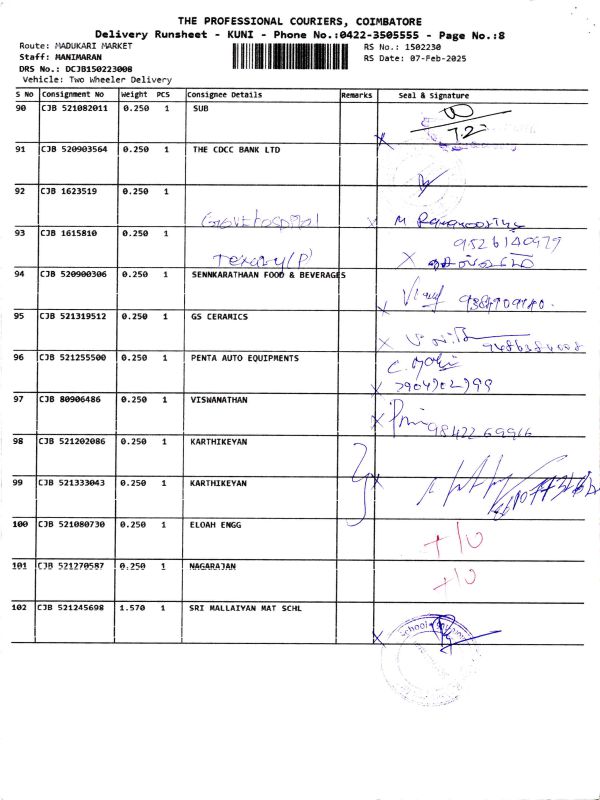 THE PROFESSIONAL COURIERS, COIMBATORE
Delivery Runsheet - KUNI - Phone No.:0422-3505555 - Page No.:8
Route: MADUKARI MARKET RS No.: 1502230
Staff: MANIMARAN RS Date: 07-Feb-2025
DRS No.: DCJB150223008
Vehicle: Two Wheeler Delivery
S No Consignment No Weight PCS Consignee Details Remarks Seal & Signature
90 CJB 521082011 0.250 1 SUB
7.2
91 CJB 520903564 0.250 1 THE CDCC BANK LTD
92 CJB 1623519 0.250 1
Govt hospital
93 CJB 1615810 0.250 1
9526140979
94 CJB 520900306 0.250 1 SENNKARATHAAN FOOD & BEVERAGES
95 CJB 521319512 0.250 1 GS CERAMICS
96 CJB 521255500 0.250 1 PENTA AUTO EQUIPMENTS
7904902999
97 CJB 80906486 0.250 1 VISWANATHAN
9842269916
98 CJB 521202086 0.250 1 KARTHIKEYAN
99 CJB 521333043 0.250 1 KARTHIKEYAN
100 CJB 521080730 0.250 1 ELOAH ENGG
101 CJB 521270587 0.250 1 NAGARAJAN
102 CJB 521245698 1.570 1 SRI MALLAIYAN MAT SCHL
School